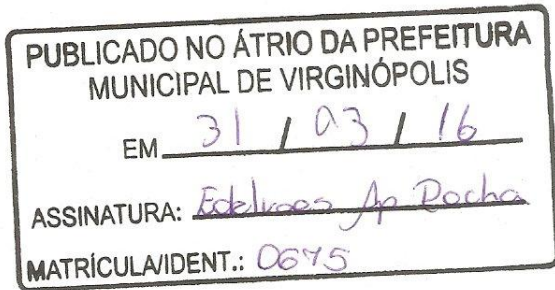 PUBLICADO NO ÁTRIO DA PREFEITURA
MUNICIPAL DE VIRGINÓPOLIS
EM 31 / 03 / 16
ASSINATURA: Ap Rocha
MATRÍCULA/IDENT.: 0675